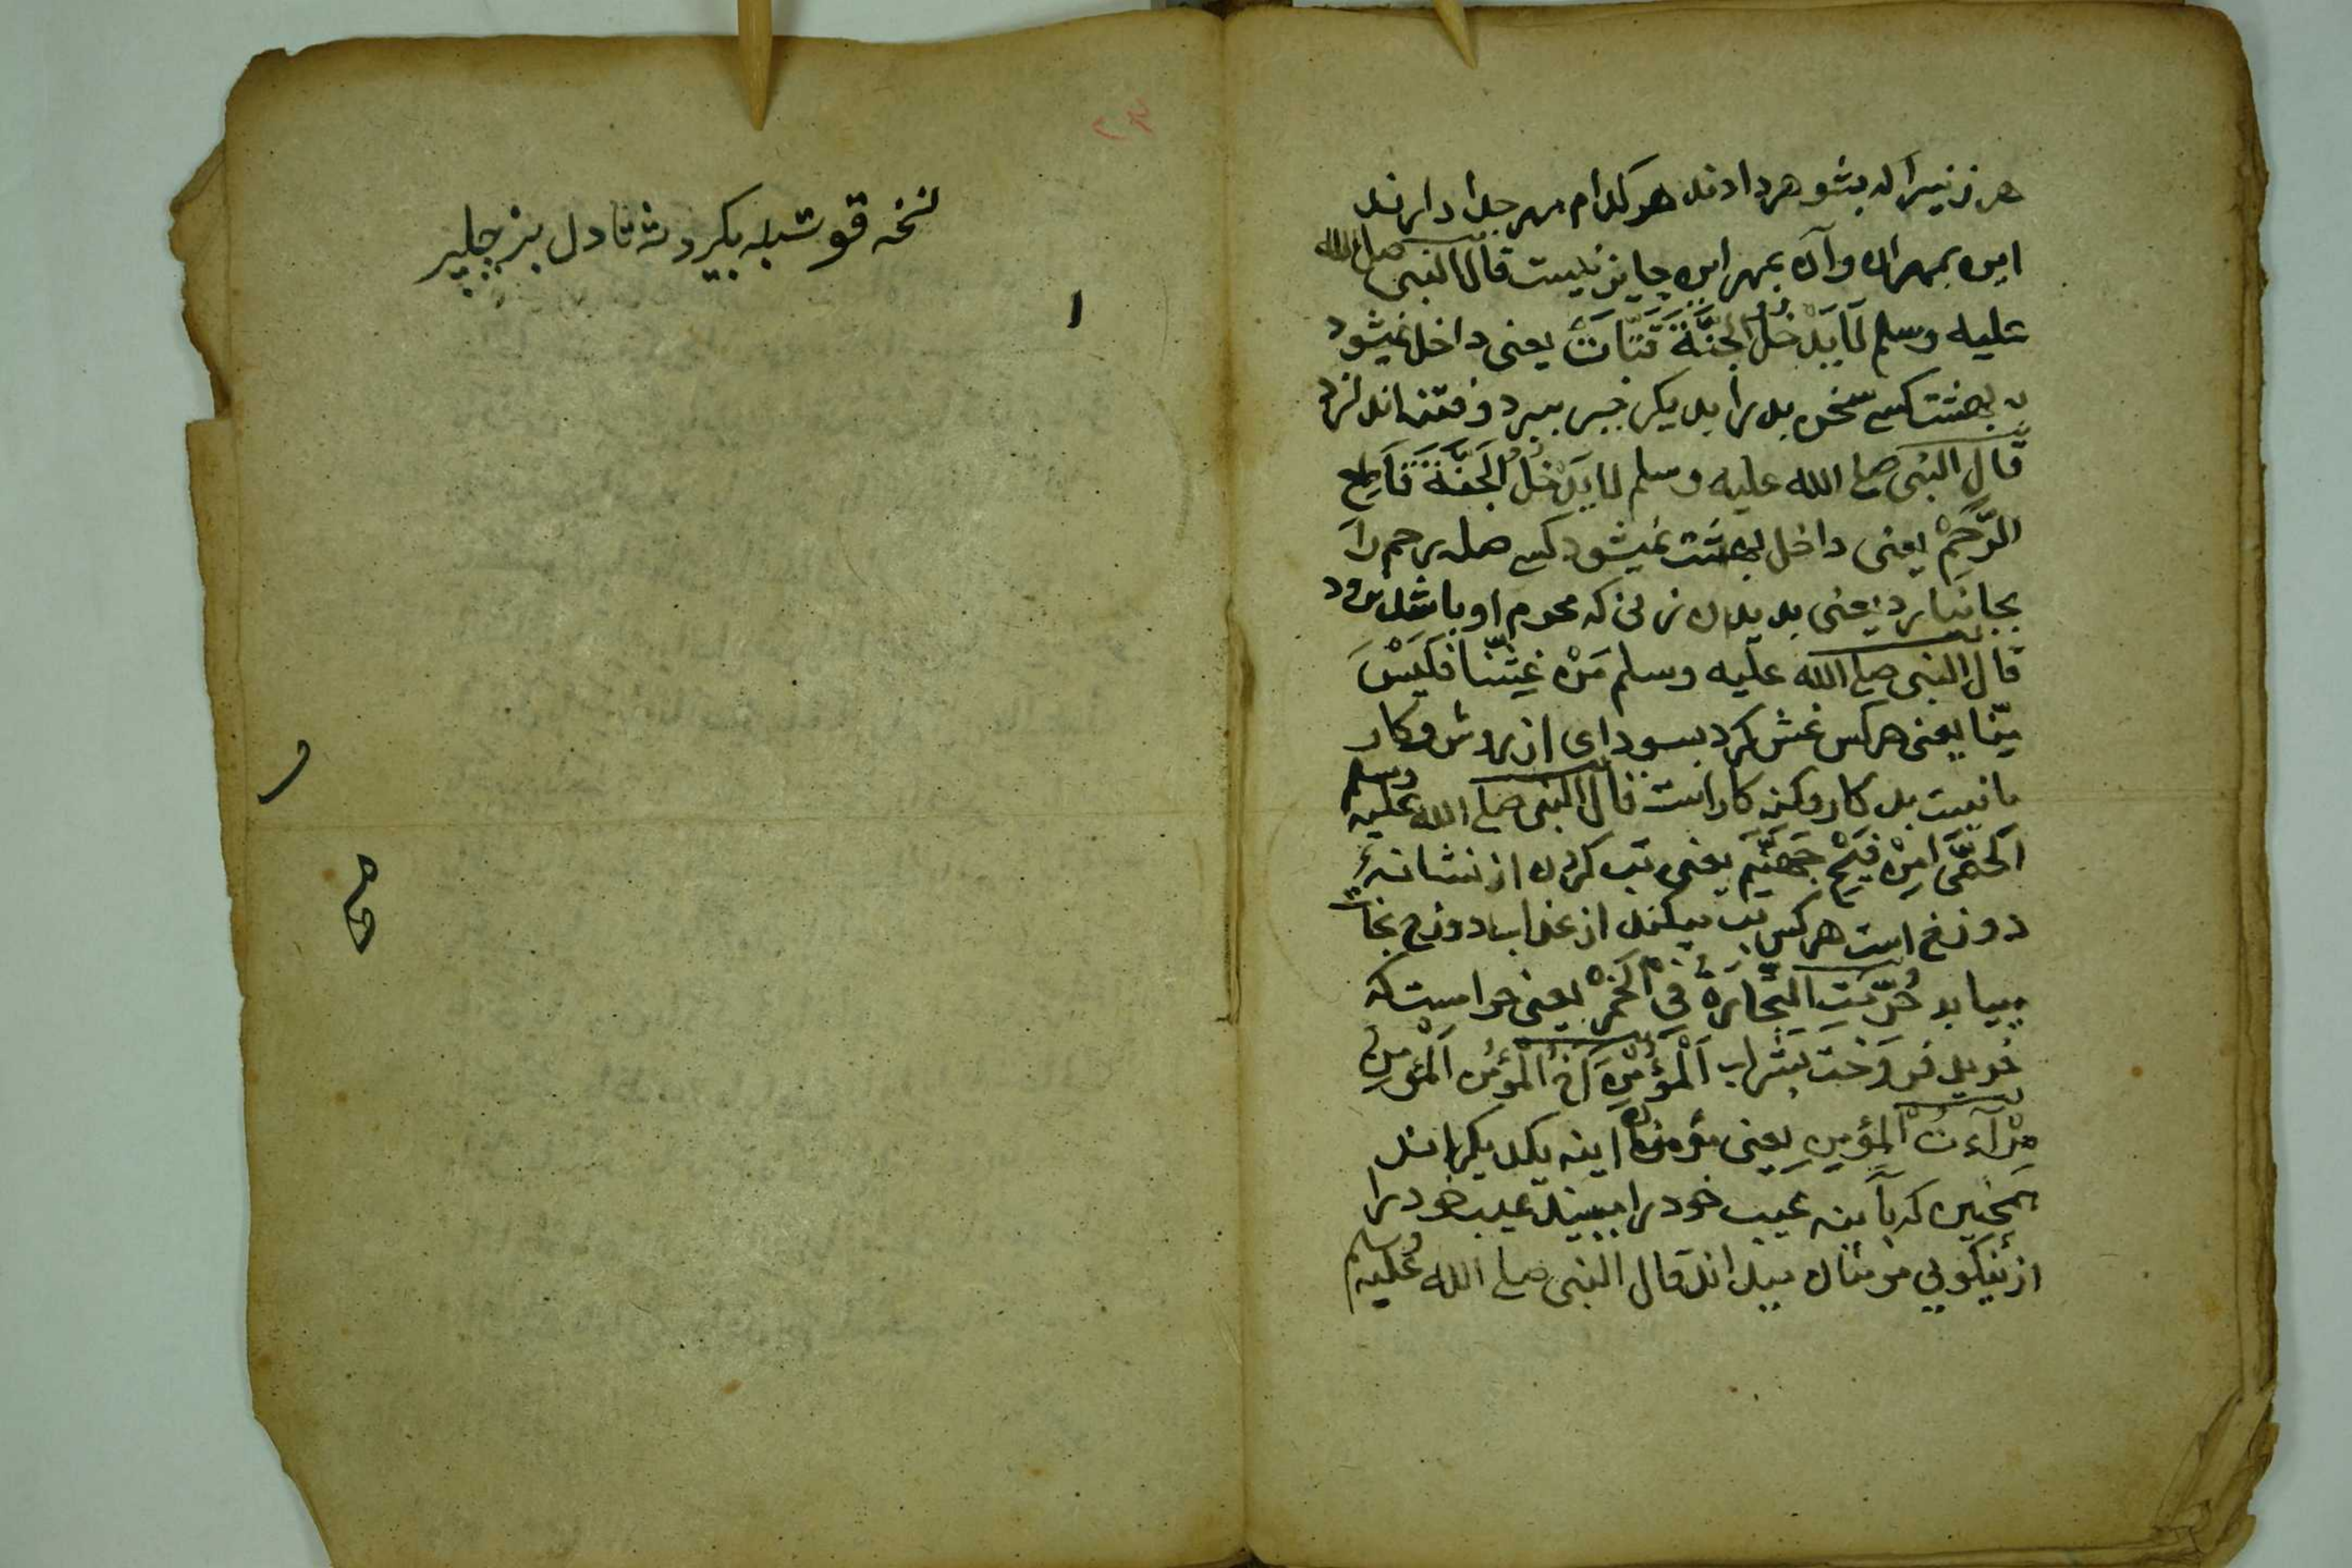 هر زنیرا که بشوهر دادند هر کدام مهر جدا دارند
این بمهر ان و آن بمهر این جایز نیست قال النبی صلی الله
علیه وسلم لَا یَدْخُلُ الجَنَّةَ قَتَّاتٌ یعنی داخل نمیشود
به بهشت کسے سخن بد را بدیکر خبر ببرد و فتنه اندازد
قال النبی صلی الله علیه وسلم لا یَدْخُلُ الجَنَّةَ قَاطِع
الرَّحِمْ یعنی داخل بهشت نمیشود کسے صله رحم را
بجا نیارد یعنی بدیدن زنی که محرم او باشد نرود
قال النبی صلی الله علیه وسلم مَنْ غَشَّنَا فَلَیْسَ
مِنّا یعنی هر کس غش کرد بسودای از روش و کار
ما نیست بد کار و کنه کار است قال النبی صلی الله علیه وسلم
اَلحُمَّی مِنْ فَیْحِ جَهَنَّم یعنی تب کردن از نشانهٔ
دوزخ است هر کس تب میکند از عذاب دوزخ نجات
مییابد حُرِّمَتِ التِّجَارَةُ فِی الخَمْرِ یعنی حرامست که
خرید فروخت بشراب اَلْمُؤْمِنُ اَخُ الْمُؤْمِن اَلْمُؤْمِنُ
مِرْآءتُ الْمُؤْمِنِ یعنی مؤمنان اینه یکدیکراند
همچنین که بآینه عیب خود را مبیند عیب خود را
از نیکویی مؤمنان میداند قال النبی صلی الله علیه وسلم
۲۳
نخه قوتبله بکیرد
۱